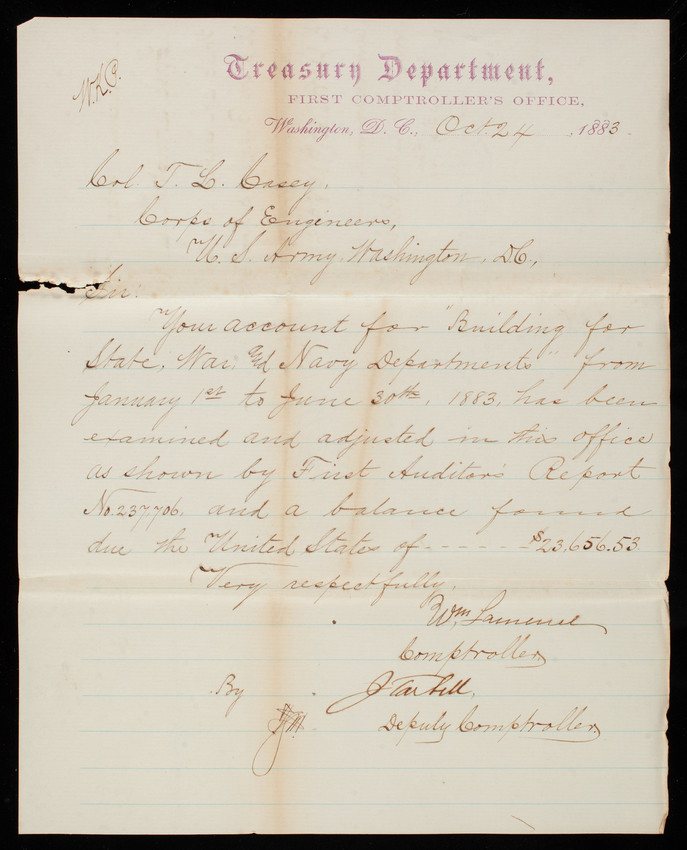 W.L.C.
Treasury Department,
FIRST COMPTROLLER'S OFFICE,
Washington, D. C., Oct. 24, 1883.
Col. T. L. Casey,
Corps of Engineers,
U. S. Army, Washington, D.C.,
Sir:
Your account for "Building for
State, War, and Navy Departments" from
January 1st to June 30th, 1883, has been
examined and adjusted in this office
as shown by First Auditor's Report
No. 237706, and a balance found
due the United States of - - - - - - $23,656.53
Very respectfully,
Wm. Lawrence
Comptroller
By J Tarbell,
Deputy Comptroller